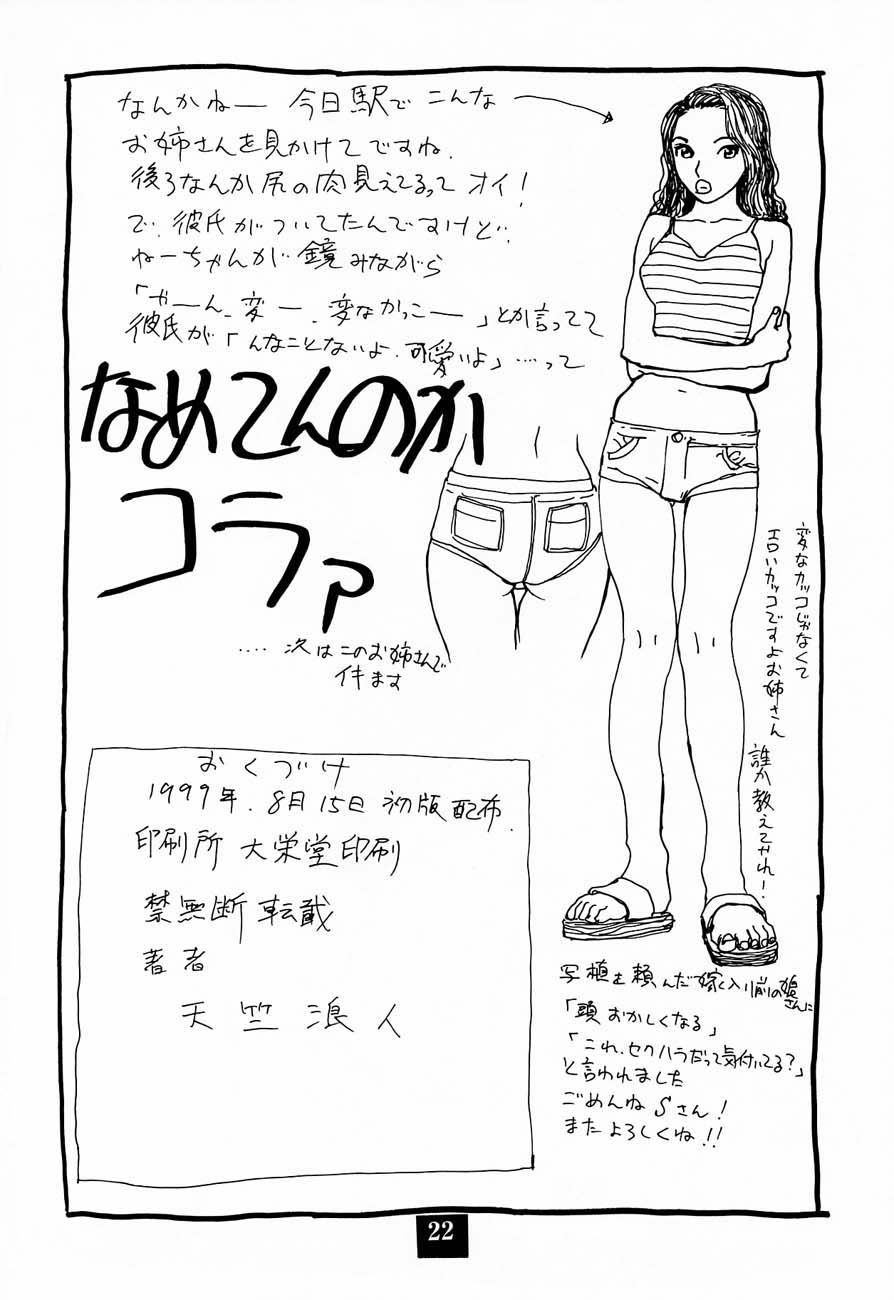 なんかねー 今日駅で こんな
お姉さんを見かけてですね、
後ろなんか尻の肉見えてるって オイ!
で、彼氏がついてたんですけど、
ねーちゃんが鏡みながら
「やーん、変ー、変なかっこー」とか言ってて
彼氏が「んなことないよ、可愛いよ」…って
なめてんのか
コラァ
‥‥次はこのお姉さんで
イキます
変なカッコじゃなくて
エロいカッコですよお姉さん
誰か教えてやれ!
おくづけ
1999年.8月15日 初版配布.
印刷所 大栄堂印刷
禁無断転載
著者
天竺浪人
写植を頼んだ嫁入り前の娘さんに
「頭おかしくなる」
「これ、セクハラだって気付いてる?」
と言われました
ごめんね Sさん!
またよろしくね!!
22